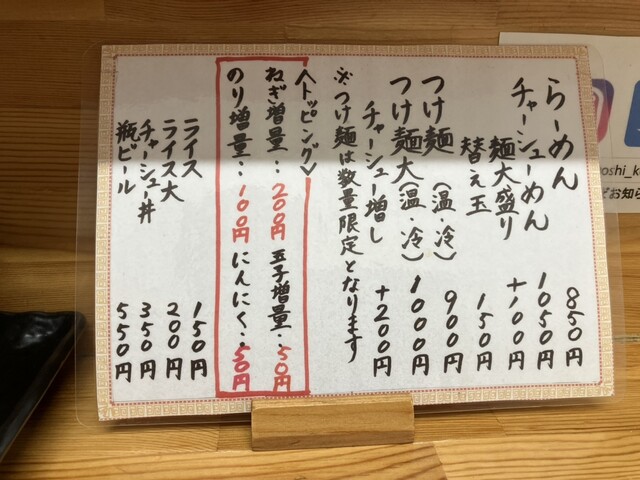 らーめん 850円
チャーシューめん 1050円
麺大盛り +100円
替え玉 150円
つけ麺(温・冷) 900円
つけ麺大(温・冷) 1000円
チャーシュー増し +200円
※つけ麺は数量限定となります
<トッピング>
ねぎ増量:200円 玉子増量:50円
のり増量:100円 にんにく:50円
ライス 150円
ライス大 200円
チャーシュー丼 350円
瓶ビール 550円